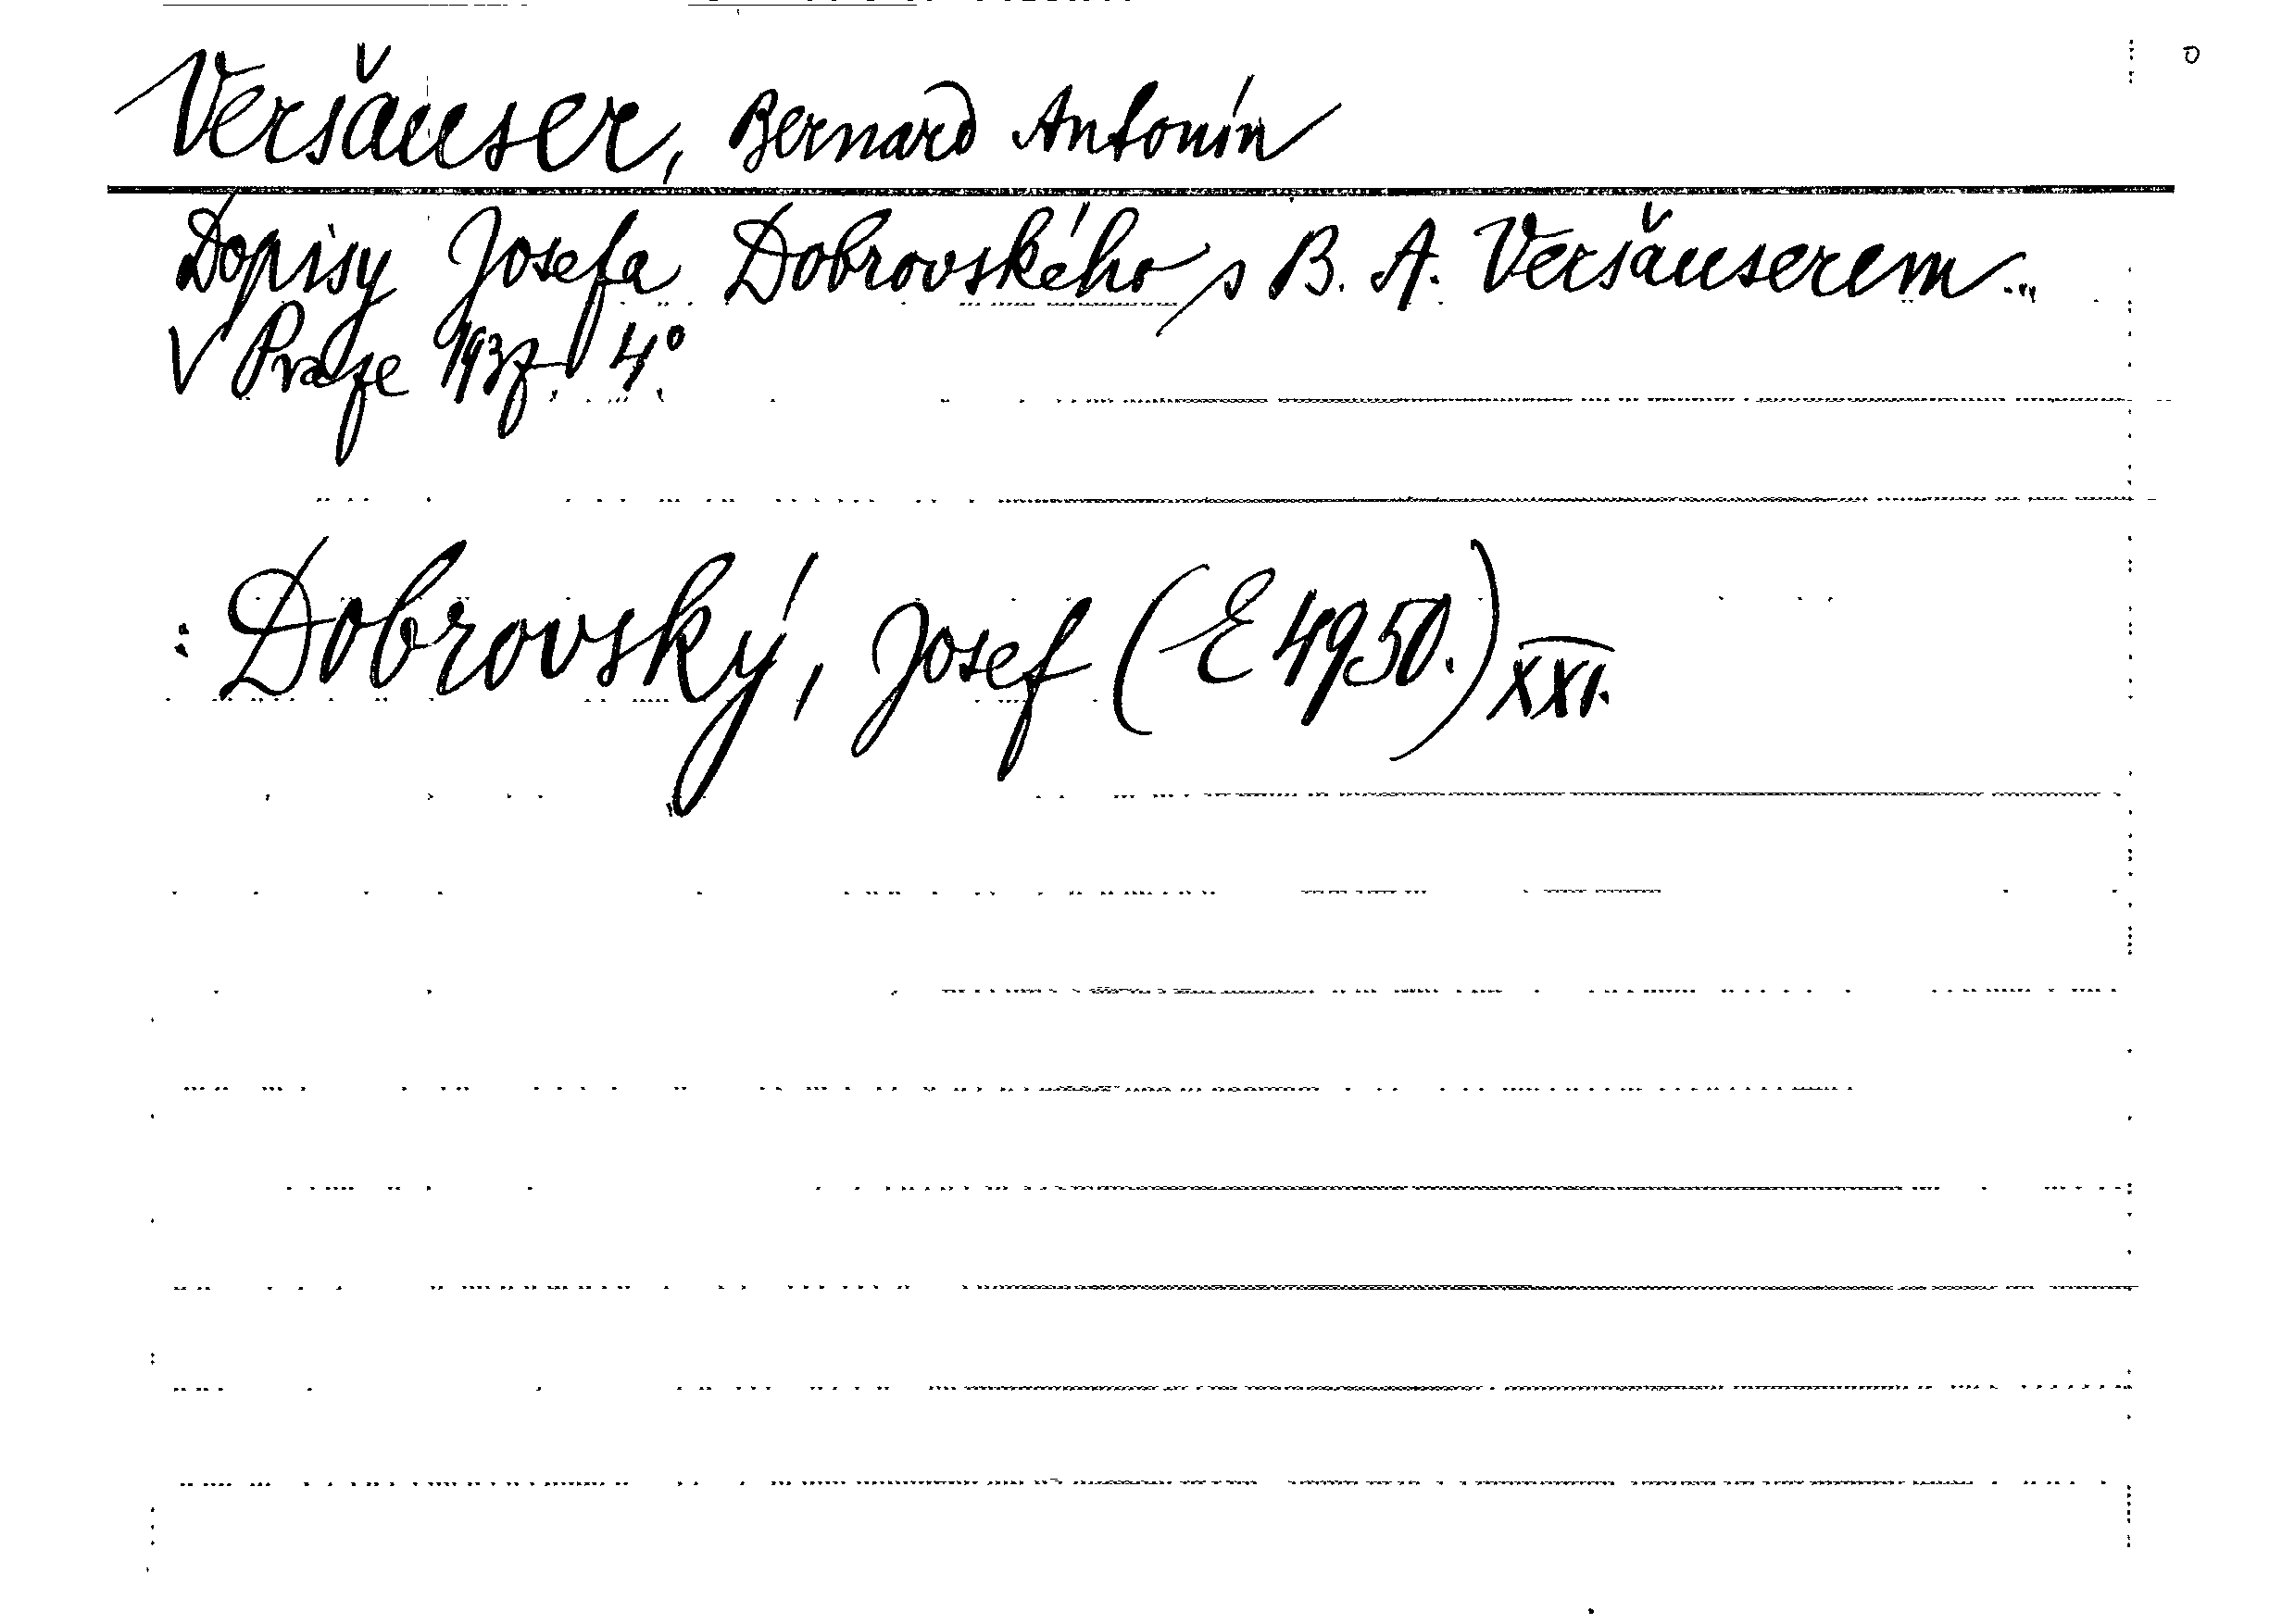 Veršauser, Bernard Antonín
Dopisy Josefa Dobrovského s B. A. Veršauserem...
V Praze 1937. 4°.
: Dobrovský, Josef (E 4950.) XXI.